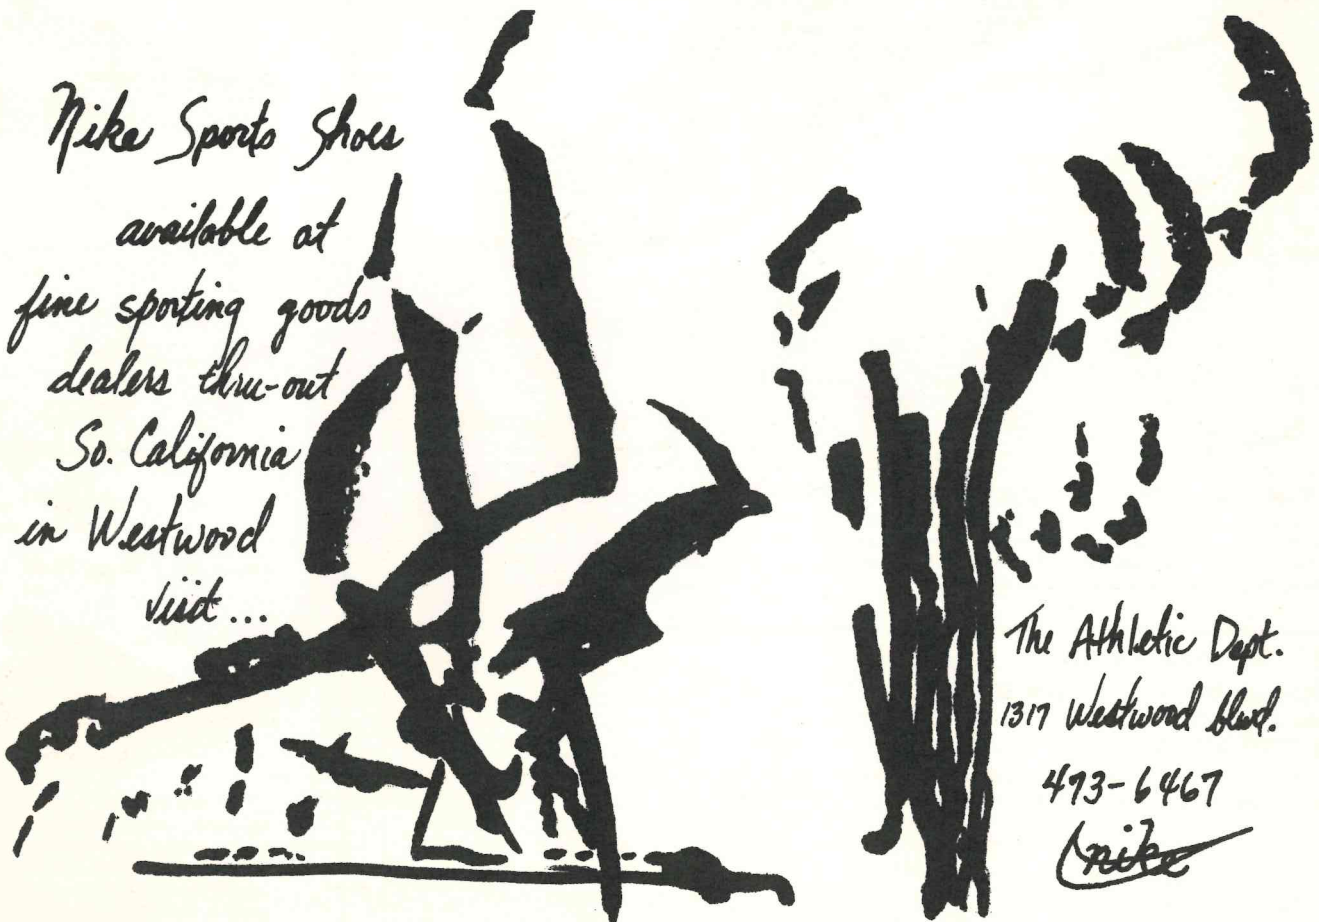 Nike Sports Shoes
available at
fine sporting goods
dealers thru-out
So. California
in Westwood
visit...
The Athletic Dept.
1317 Westwood blvd.
473-6467
nike